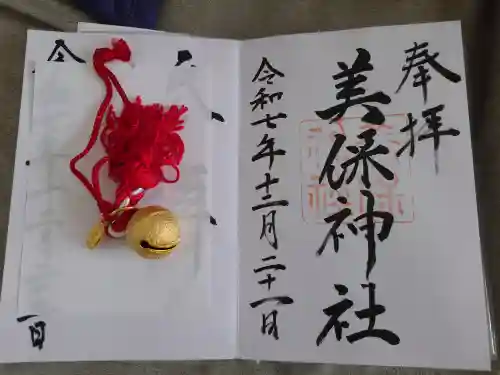 奉拝
美保神社
令和七年十二月二十一日
令
一日